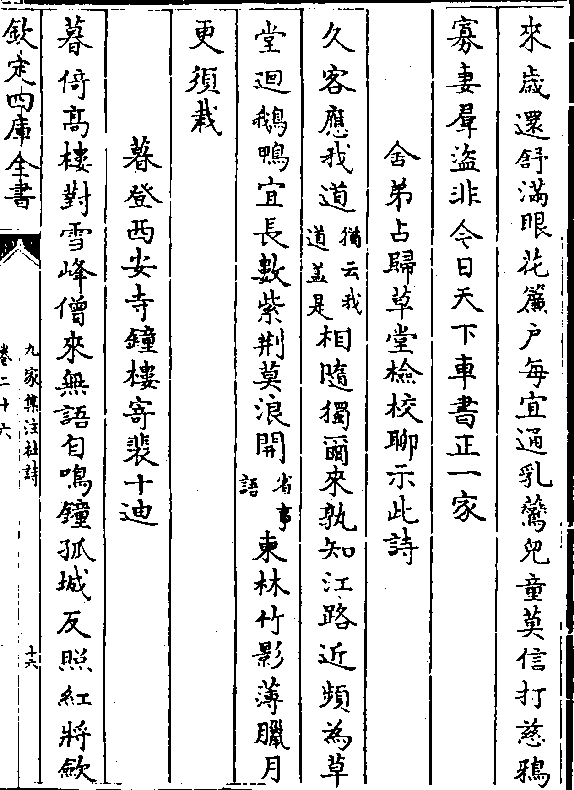 來歲還舒滿眼花簾户每宜通乳鷰兒童莫信打慈鴉
寡妻羣盜非今日天下車書正一家
舍弟占歸草堂檢校聊示此詩
久客應我道猶云我道盖是相隨獨爾來孰知江路近頻為草
堂迴鵝鴨宜長數紫荆莫浪開省事語東林竹影薄臘月
更須栽
暮登西安寺鐘樓寄裴十迪
暮倚髙樓對雪峰僧來無語自鳴鐘孤城反照紅將歛
欽定四庫全書
九家集注杜詩
卷二十六
十六